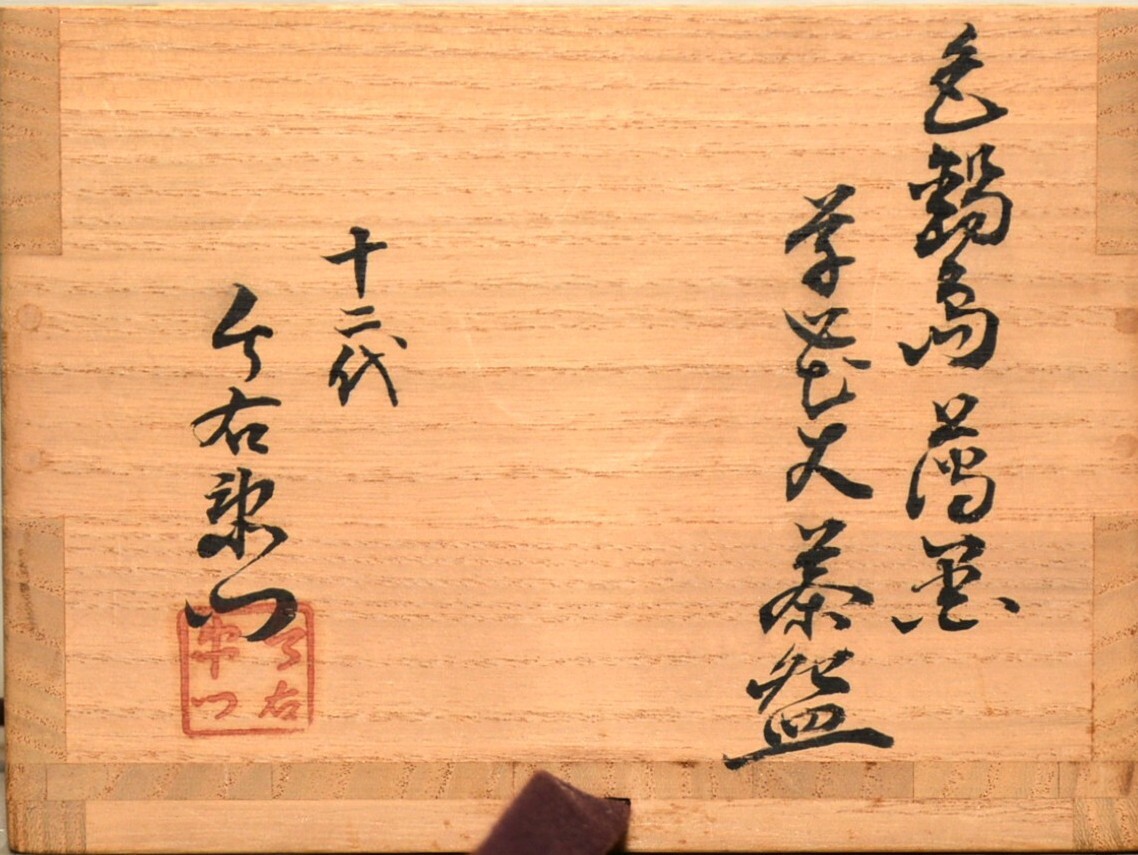 色鍋島 薄墨
草花文茶盌
十二代
今右衛門
今右
衛門